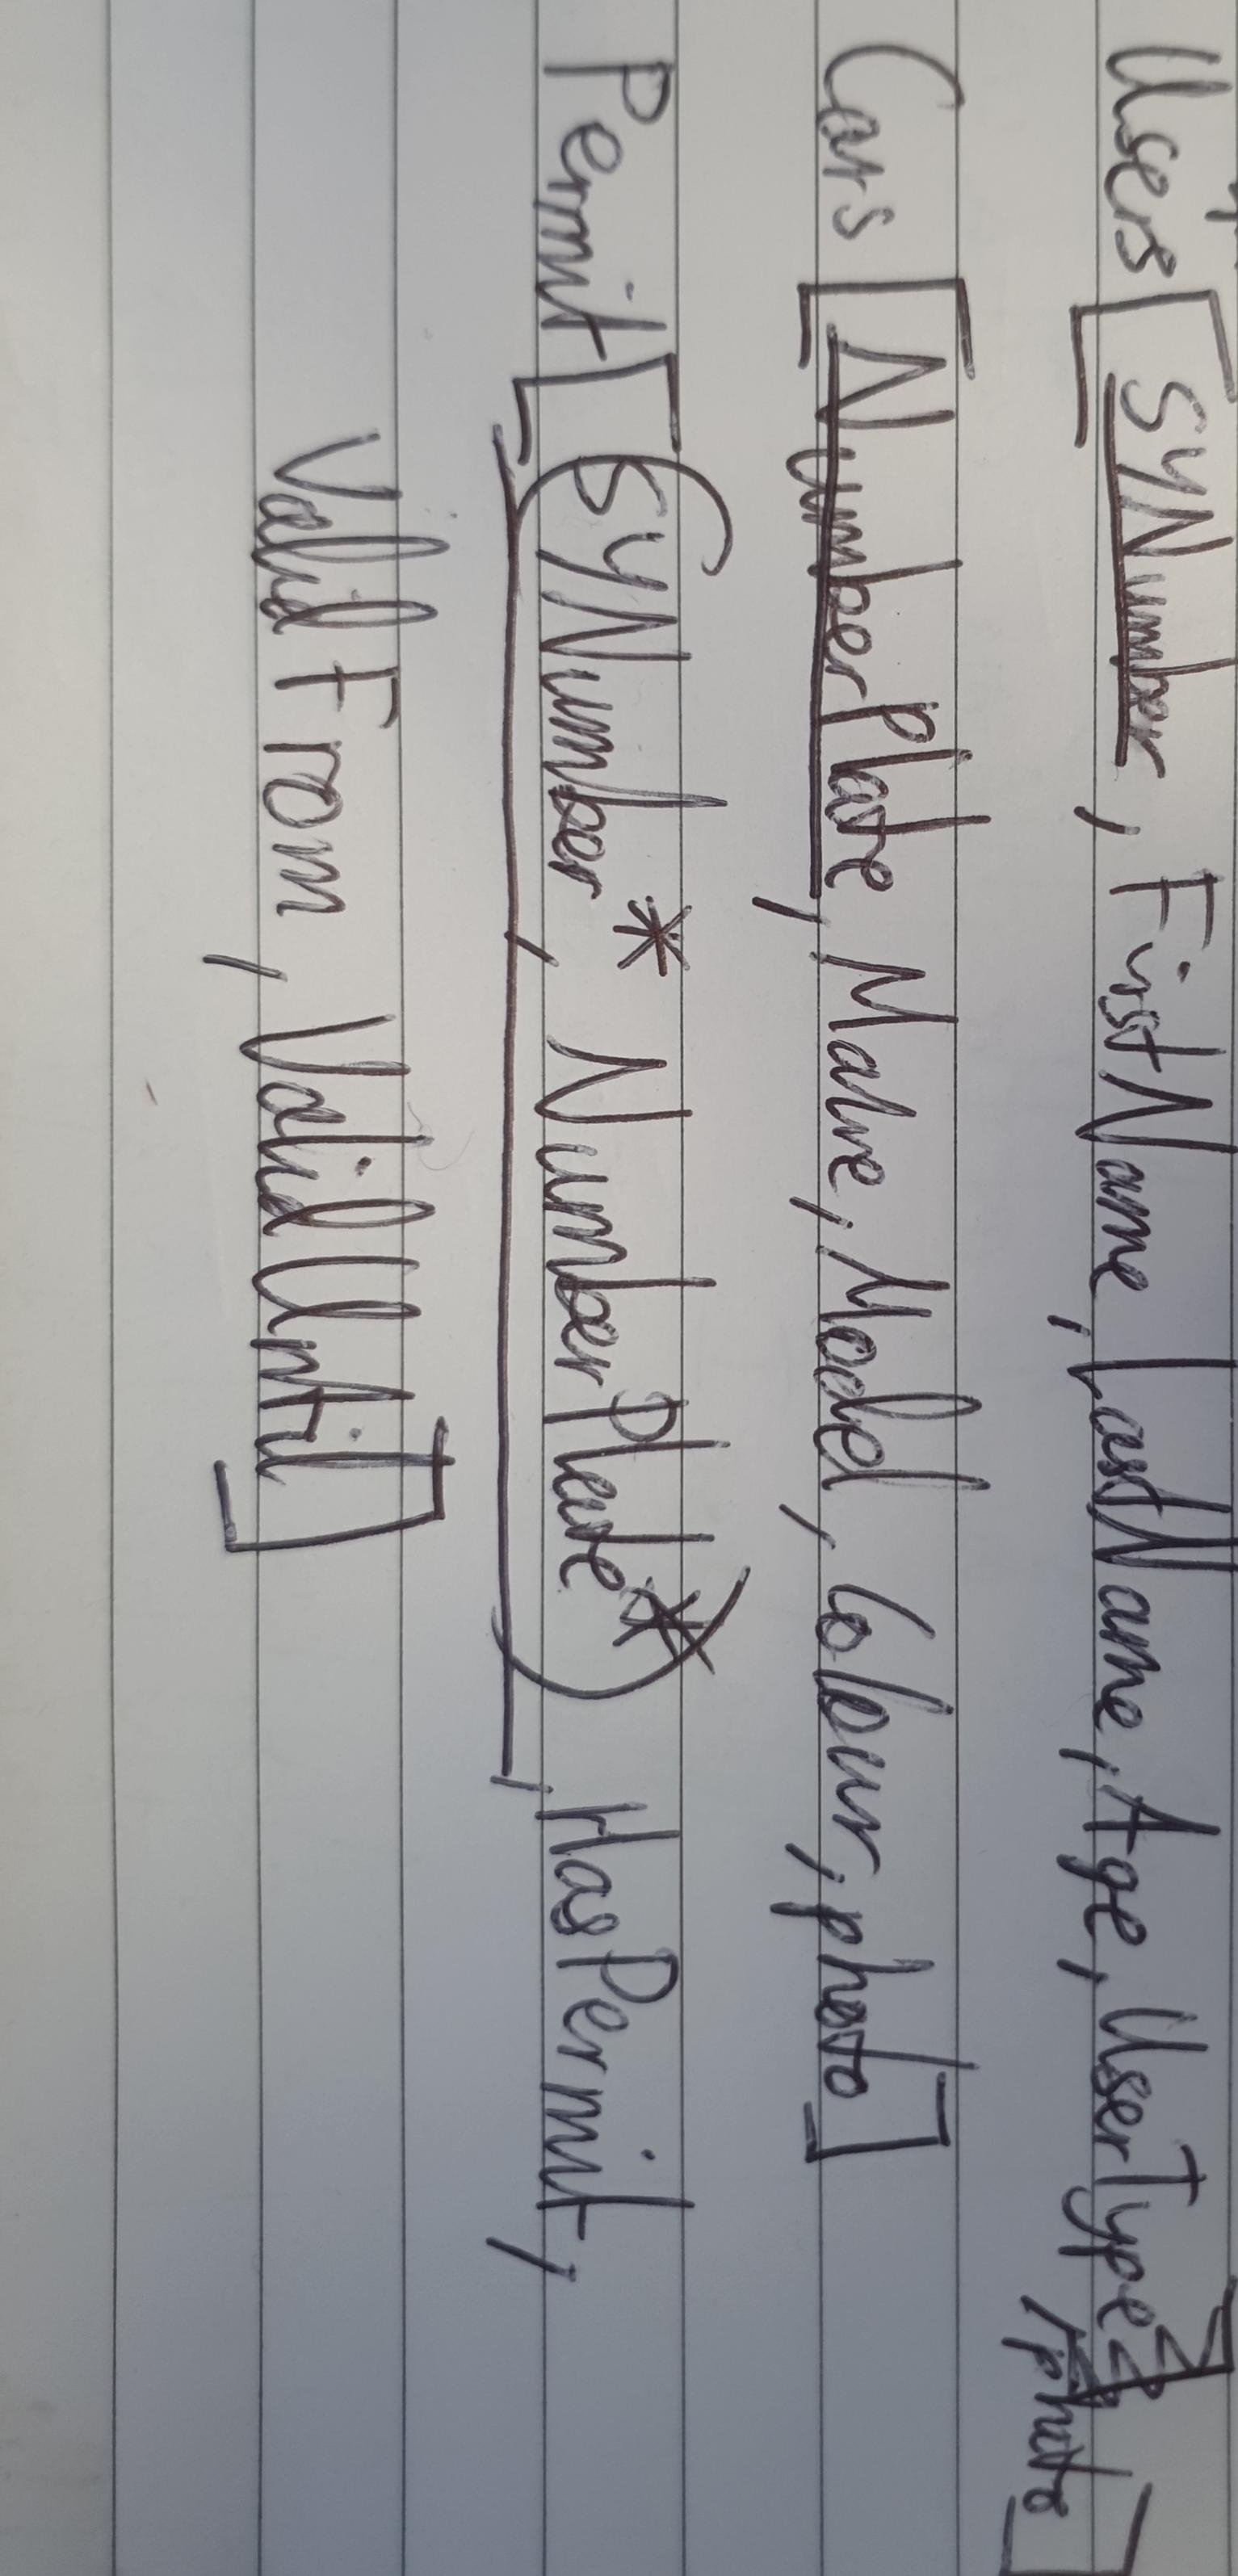 Users [SYNumber, FirstName, LastName, Age, UserType, photo]
Cars [NumberPlate, Make, Model, Colour, photo]
Permit [(SYNumber*, NumberPlate*), HasPermit,
ValidFrom, ValidUntil]